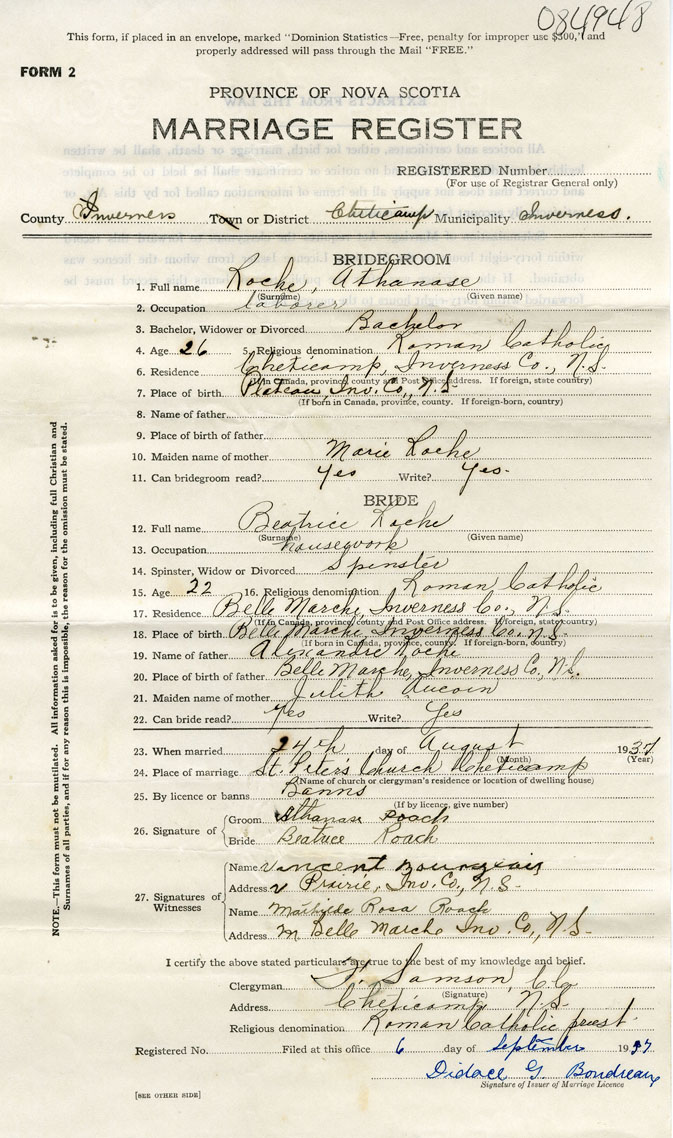 084948
This form, if placed in an envelope, marked "Dominion Statistics—Free, penalty for improper use $300," and
properly addressed will pass through the Mail "FREE."
FORM 2
PROVINCE OF NOVA SCOTIA
MARRIAGE REGISTER
REGISTERED Number
(For use of Registrar General only)
County Inverness Town or District Cheticamp Municipality Inverness.
BRIDEGROOM
1. Full name Roche, Athanase
(Surname) (Given name)
2. Occupation laborer
3. Bachelor, Widower or Divorced Bachelor
4. Age 26 5. Religious denomination Roman Catholic
6. Residence Cheticamp, Inverness Co., N.S.
(If in Canada, province, county and Post Office address. If foreign, state country)
7. Place of birth Plateau, Inv. Co., N.S.
(If born in Canada, province, county. If foreign-born, country)
8. Name of father
9. Place of birth of father
10. Maiden name of mother Marie Roche
11. Can bridegroom read? Yes Write? Yes.
BRIDE
12. Full name Beatrice Roche
(Surname) (Given name)
13. Occupation housework
14. Spinster, Widow or Divorced Spinster
15. Age 22 16. Religious denomination Roman Catholic
17. Residence Belle Marche, Inverness Co., N.S.
(If in Canada, province, county and Post Office address. If foreign, state country)
18. Place of birth Belle Marche, Inverness Co. N.S.
(If born in Canada, province, county. If foreign-born, country)
19. Name of father Alexandre Roche
20. Place of birth of father Belle Marche, Inverness Co., N.S.
21. Maiden name of mother Julith Aucoin
22. Can bride read? Yes Write? Yes
23. When married 24th day of August 1937
(Month) (Year)
24. Place of marriage St. Peter's Church Cheticamp
(Name of church or clergyman's residence or location of dwelling house)
25. By licence or banns Banns
(If by licence, give number)
26. Signature of
Groom Athanase Roach
Bride Beatrice Roach
27. Signatures of Witnesses
Name Vincent Bourgeois
Address Prairie, Inv. Co., N.S.
Name Mathilde Rosa Roach
Address Belle Marche Inv. Co., N.S.
I certify the above stated particulars are true to the best of my knowledge and belief.
Clergyman Samson,
(Signature)
Address Cheticamp N.S.
Religious denomination Roman Catholic priest.
Registered No. Filed at this office 6 day of September 1937
Didace G. Boudreau
Signature of Issuer of Marriage Licence
[SEE OTHER SIDE]
NOTE.—This form must not be mutilated. All information asked for is to be given, including full Christian and
Surnames of all parties, and if for any reason this is impossible, the reason for the omission must be stated.